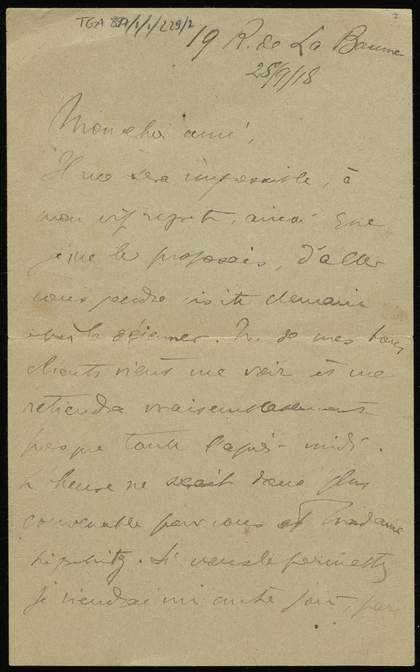 TGA 817/1/1/229/2
2
19 R. de La Baume
28/9/18
Mon cher ami,
Il me sera impossible, à
mon vif regret, ainsi que
je me le proposais, d'aller
vous rendre visite demain
après le déjeuner. Un de mes bons
clients vient me voir et me
retiendra vraisemblablement
presque toute l'après-midi.
L'heure ne serait donc plus
convenable pour vous et Madame
Lipchitz. Si vous le permettez
je viendrai un autre jour, par